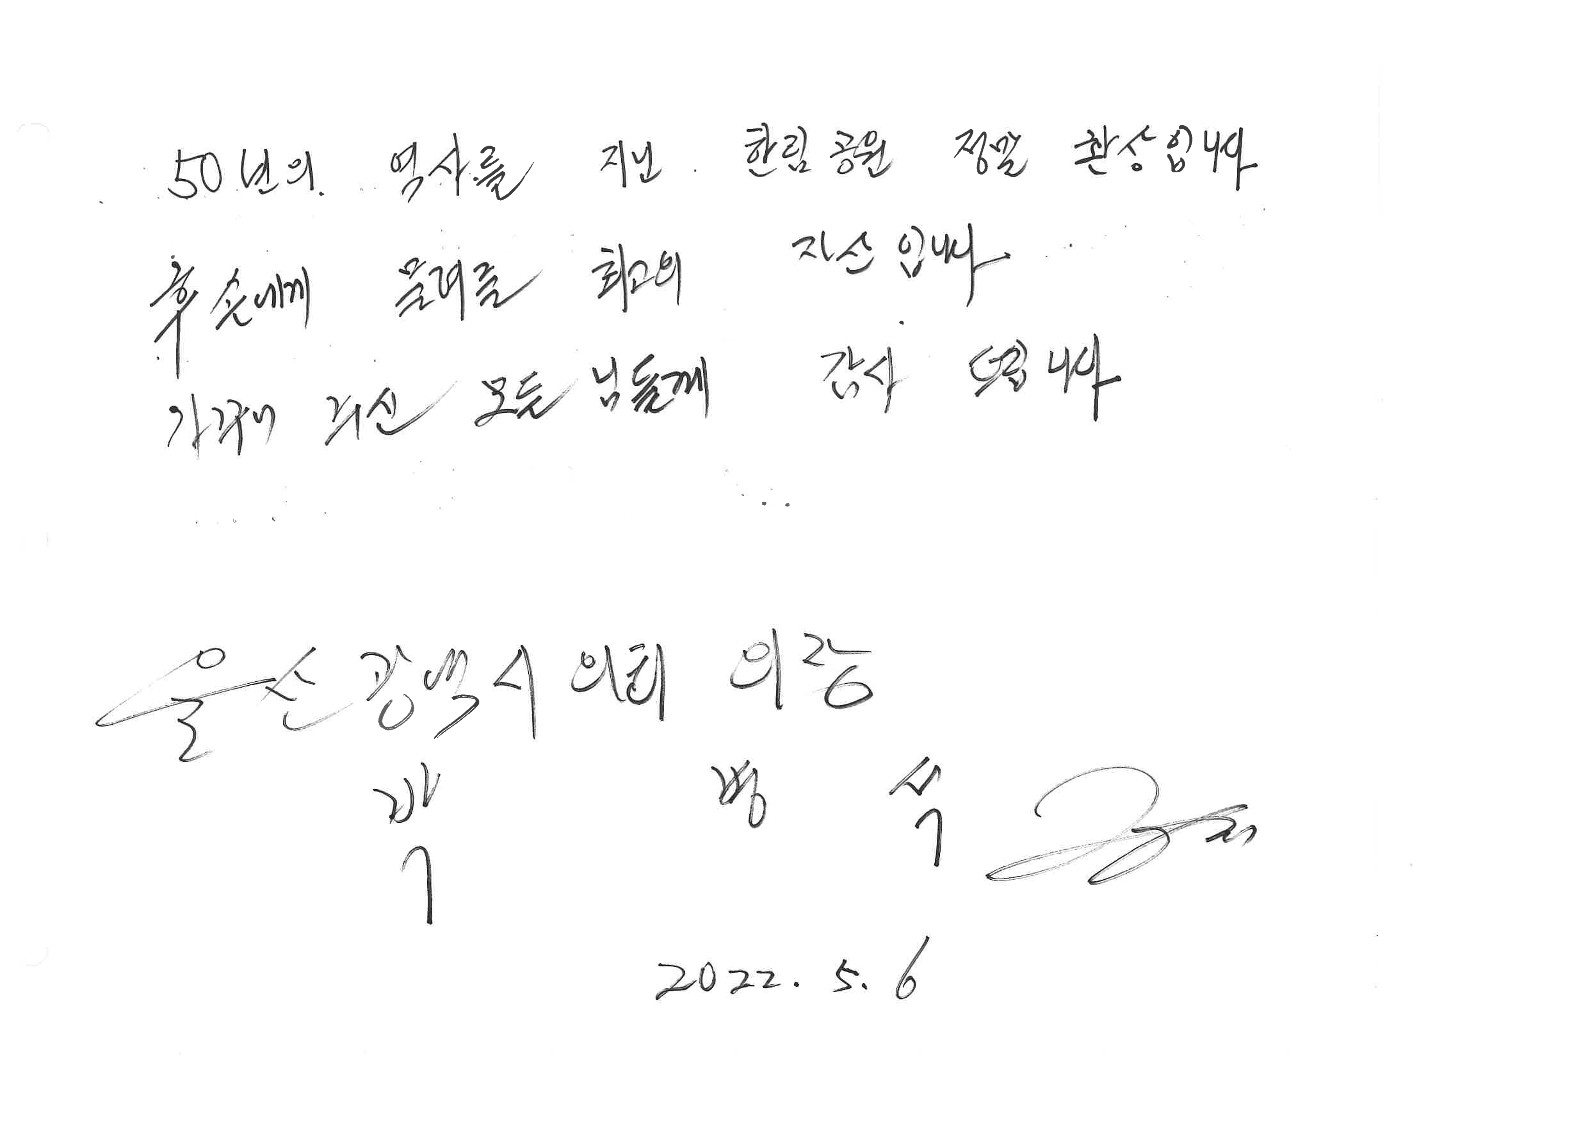 50년의 역사를 지닌 한림공원 정말 환상입니다
후손에게 물려줄 최고의 자산입니다
가꾸어 주신 모든 님들께 감사 드립니다
울산광역시의회 의장
박 병 석
2022. 5. 6